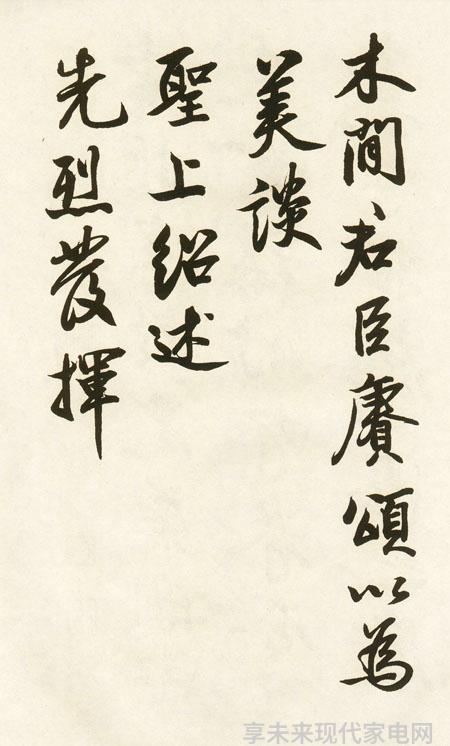 木間君臣賡頌以為
美談
聖上紹述
先烈發揮
享未来现代家电网